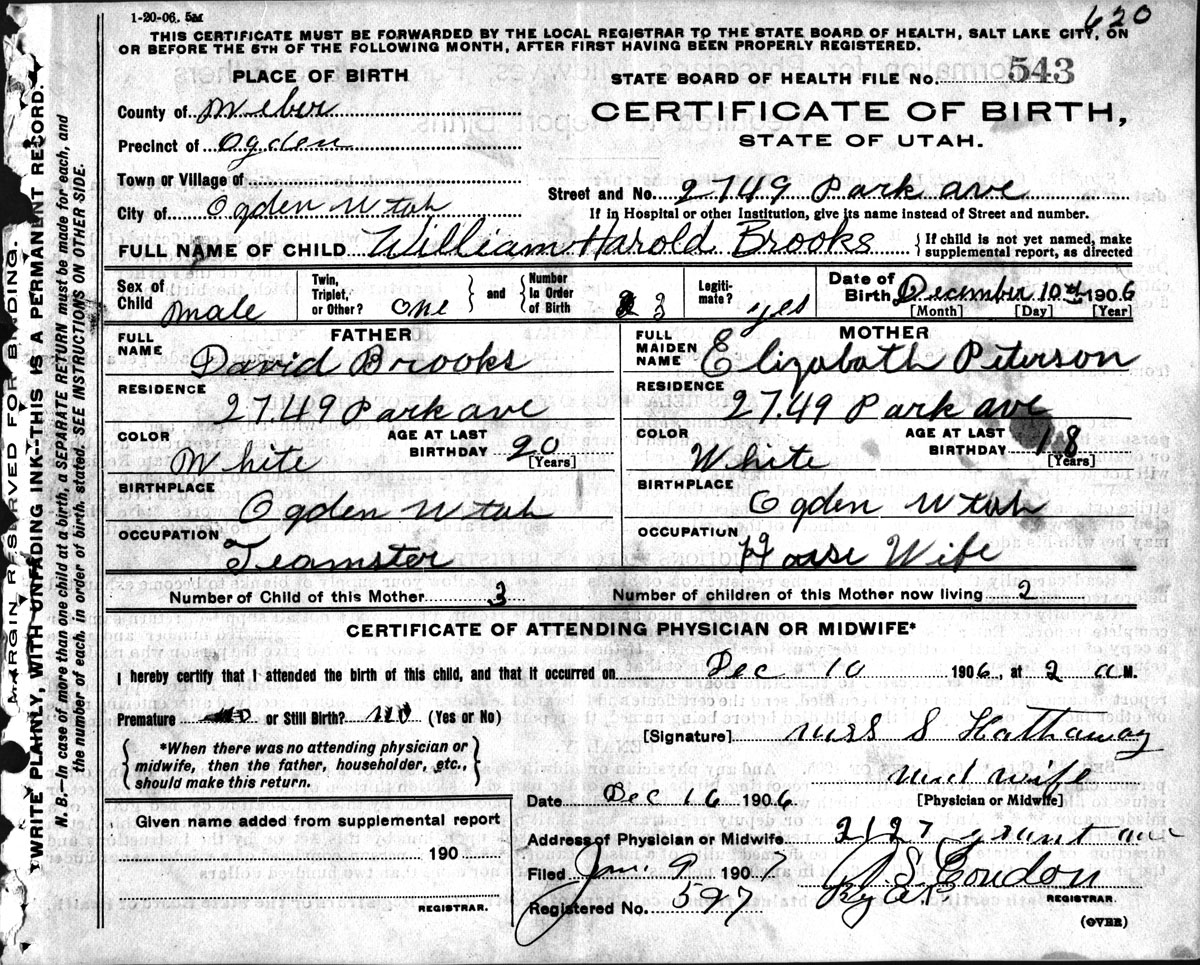 1-20-06. 5M
620
THIS CERTIFICATE MUST BE FORWARDED BY THE LOCAL REGISTRAR TO THE STATE BOARD OF HEALTH, SALT LAKE CITY, ON
OR BEFORE THE 5TH OF THE FOLLOWING MONTH, AFTER FIRST HAVING BEEN PROPERLY REGISTERED.
MARGIN RESERVED FOR BINDING.
WRITE PLAINLY, WITH UNFADING INK--THIS IS A PERMANENT RECORD.
N. B.—In case of more than one child at a birth, a SEPARATE RETURN must be made for each, and
the number of each, in order of birth, stated. SEE INSTRUCTIONS ON OTHER SIDE.
PLACE OF BIRTH
STATE BOARD OF HEALTH FILE No. 543
County of Weber
CERTIFICATE OF BIRTH,
STATE OF UTAH.
Precinct of Ogden
Town or Village of
Street and No. 2749 Park ave
City of Ogden Utah
If in Hospital or other Institution, give its name instead of Street and number.
FULL NAME OF CHILD William Harold Brooks { If child is not yet named, make
supplemental report, as directed
Sex of Child male
Twin, Triplet, or Other? One } and { Number In Order of Birth 3
Legiti-mate? yes
Date of Birth, December 10th 1906
[Month] [Day] [Year]
FATHER
FULL NAME David Brooks
MOTHER
FULL MAIDEN NAME Elizabath Peterson
RESIDENCE 2749 Park ave
RESIDENCE 2749 Park ave
COLOR White AGE AT LAST BIRTHDAY 20 [Years]
COLOR White AGE AT LAST BIRTHDAY 18 [Years]
BIRTHPLACE Ogden Utah
BIRTHPLACE Ogden Utah
OCCUPATION Teamster
OCCUPATION House Wife
Number of Child of this Mother 3
Number of children of this Mother now living 2
CERTIFICATE OF ATTENDING PHYSICIAN OR MIDWIFE*
I hereby certify that I attended the birth of this child, and that it occurred on Dec 10 1906, at 2 a M.
Premature no or Still Birth? no (Yes or No)
[Signature] Mrs S Hathaway
{ *When there was no attending physician or
midwife, then the father, householder, etc.,
should make this return. }
mid wife
[Physician or Midwife]
Date Dec 16 1906
Given name added from supplemental report
Address of Physician or Midwife 2127 grant ave
190
Filed Jan. 9 1907
Condon
REGISTRAR.
REGISTRAR.
Registered No. 597
(OVER)